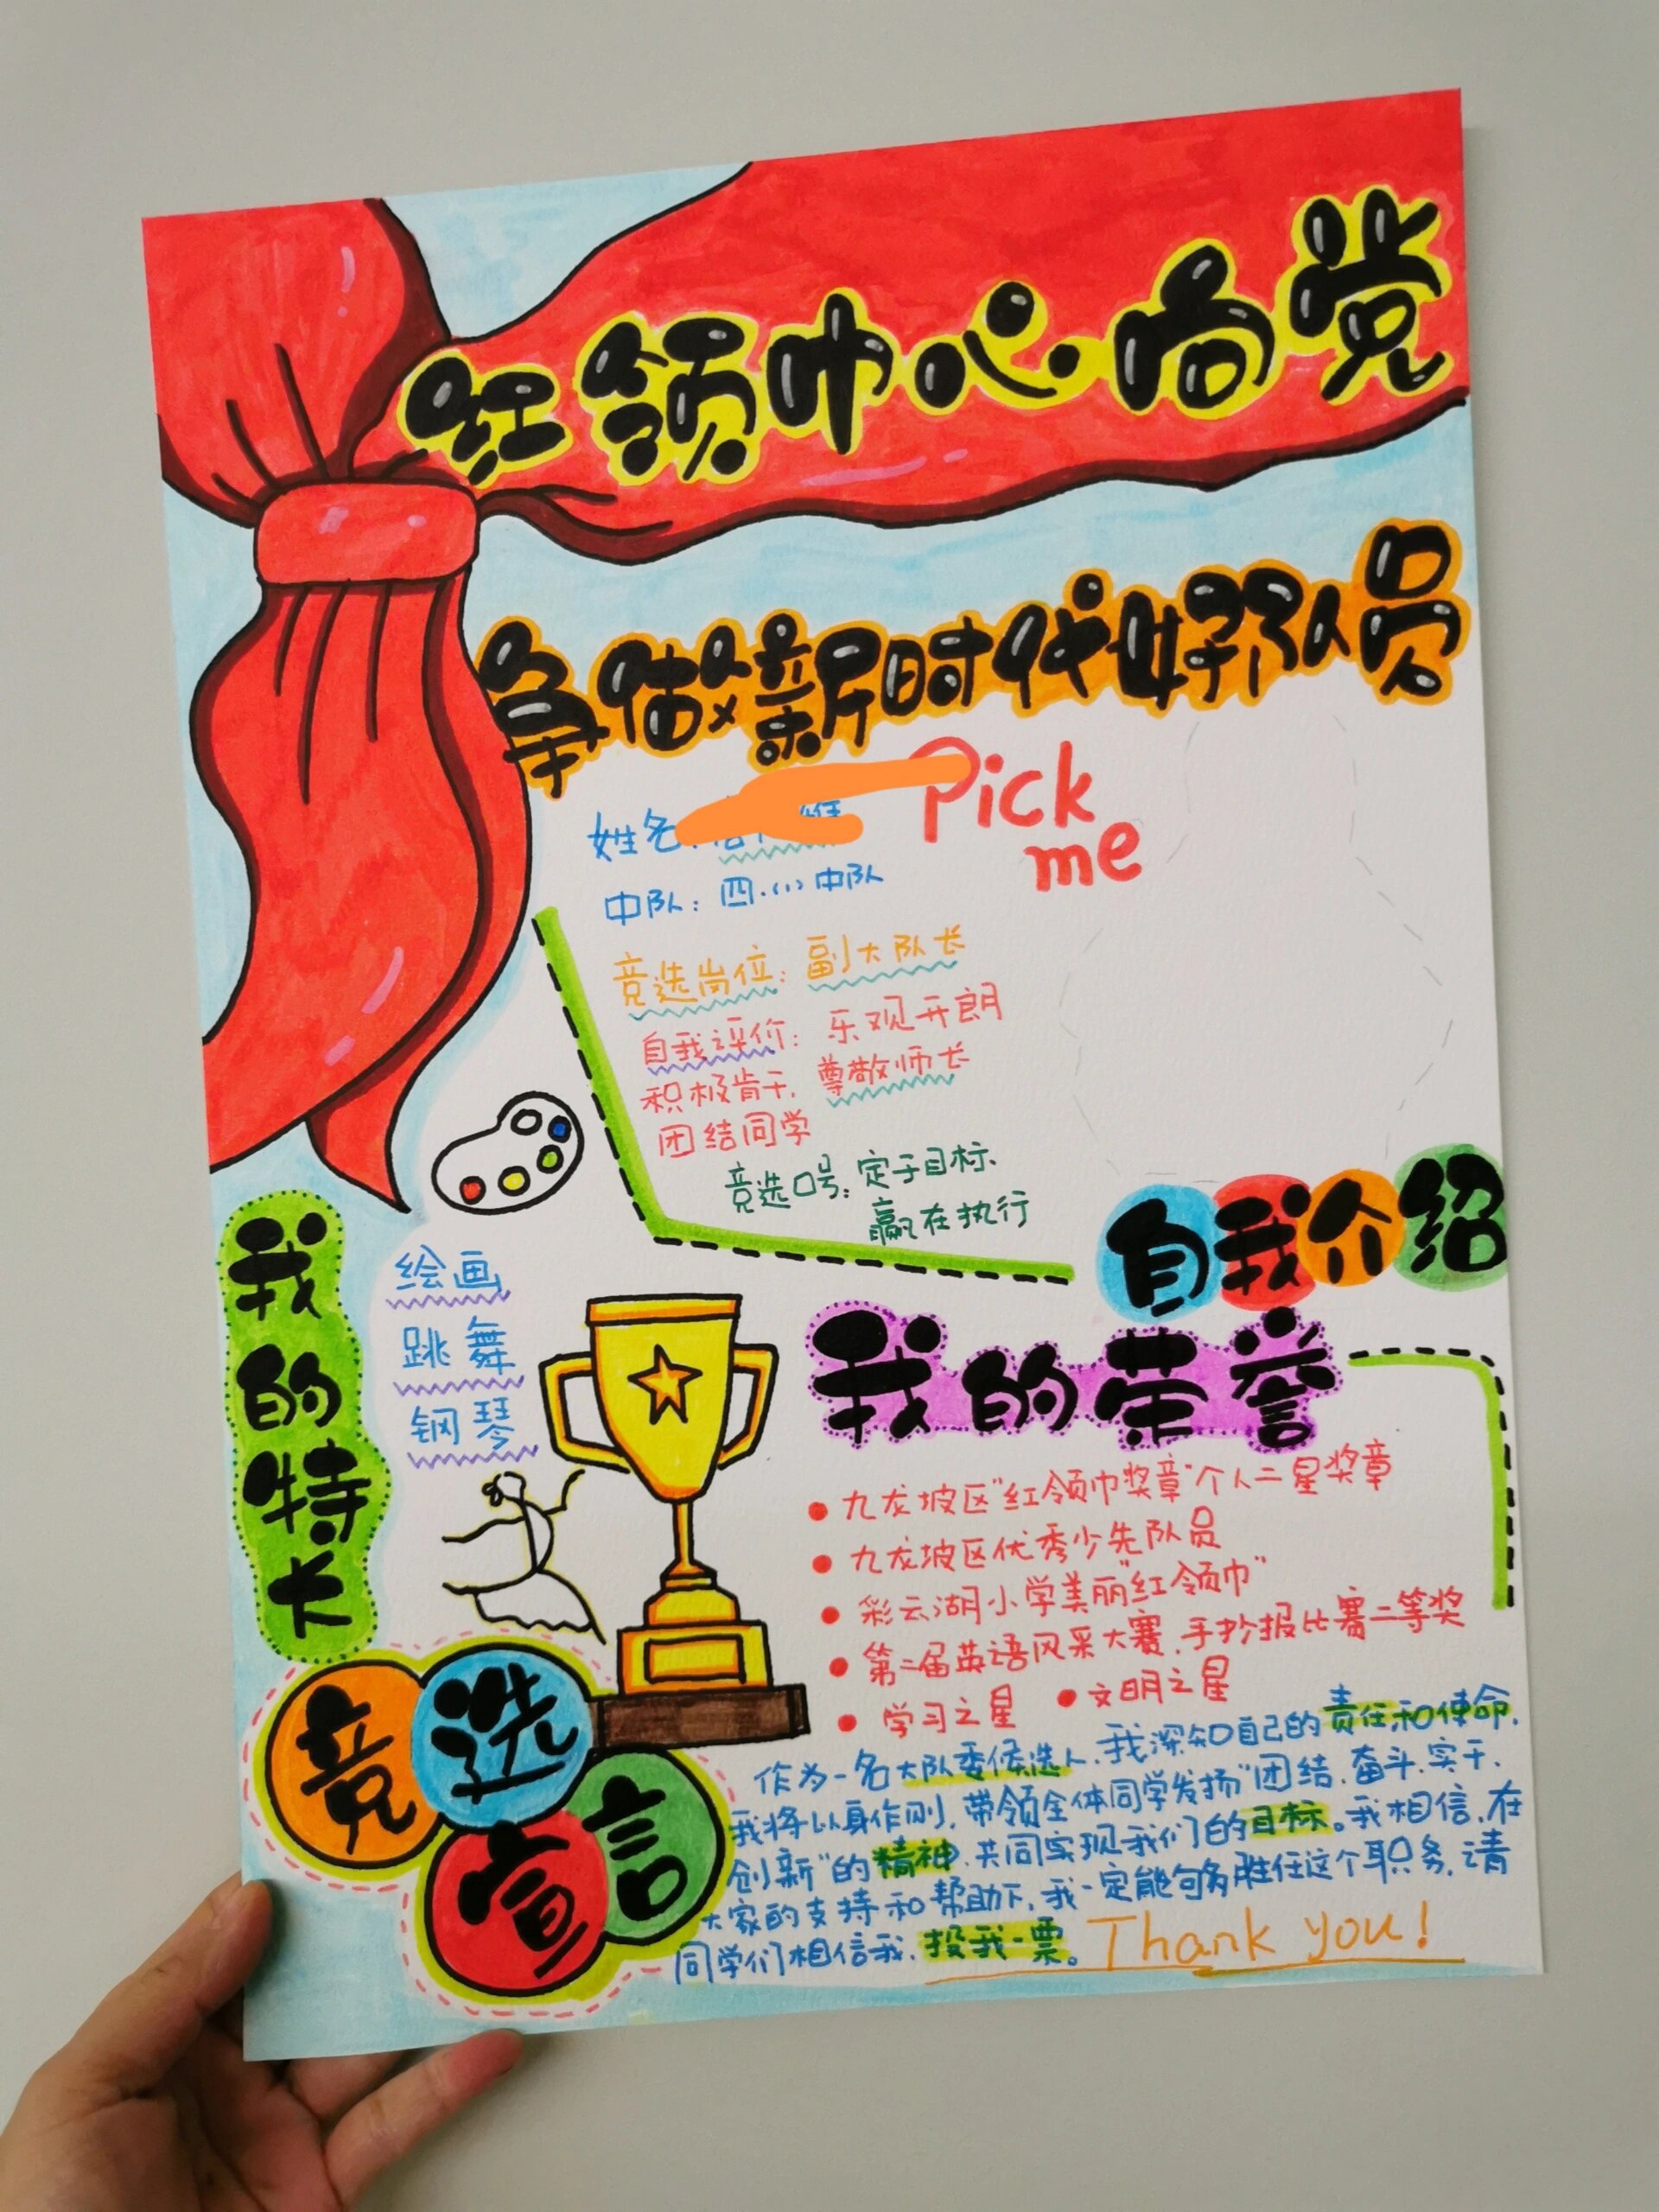 红领巾心向党
争做新时代好队员
Pick
me
姓名:
中队：四.(1)中队
竞选岗位：副大队长
自我评价：乐观开朗
积极肯干、尊敬师长
团结同学
竞选口号：定于目标、
赢在执行
自我介绍
我的特长
绘画
跳舞
钢琴
我的荣誉
九龙坡区“红领巾奖章”个人二星奖章
九龙坡区优秀少先队员
彩云湖小学美丽“红领巾”
第二届英语风采大赛、手抄报比赛二等奖
学习之星 文明之星
竞选宣言
作为一名大队委候选人、我深知自己的责任和使命、
我将以身作则、带领全体同学发扬“团结、奋斗、实干、
创新”的精神、共同实现我们的目标。我相信、在
大家的支持和帮助下、我一定能够胜任这个职务、请
同学们相信我、投我一票。Thank you!